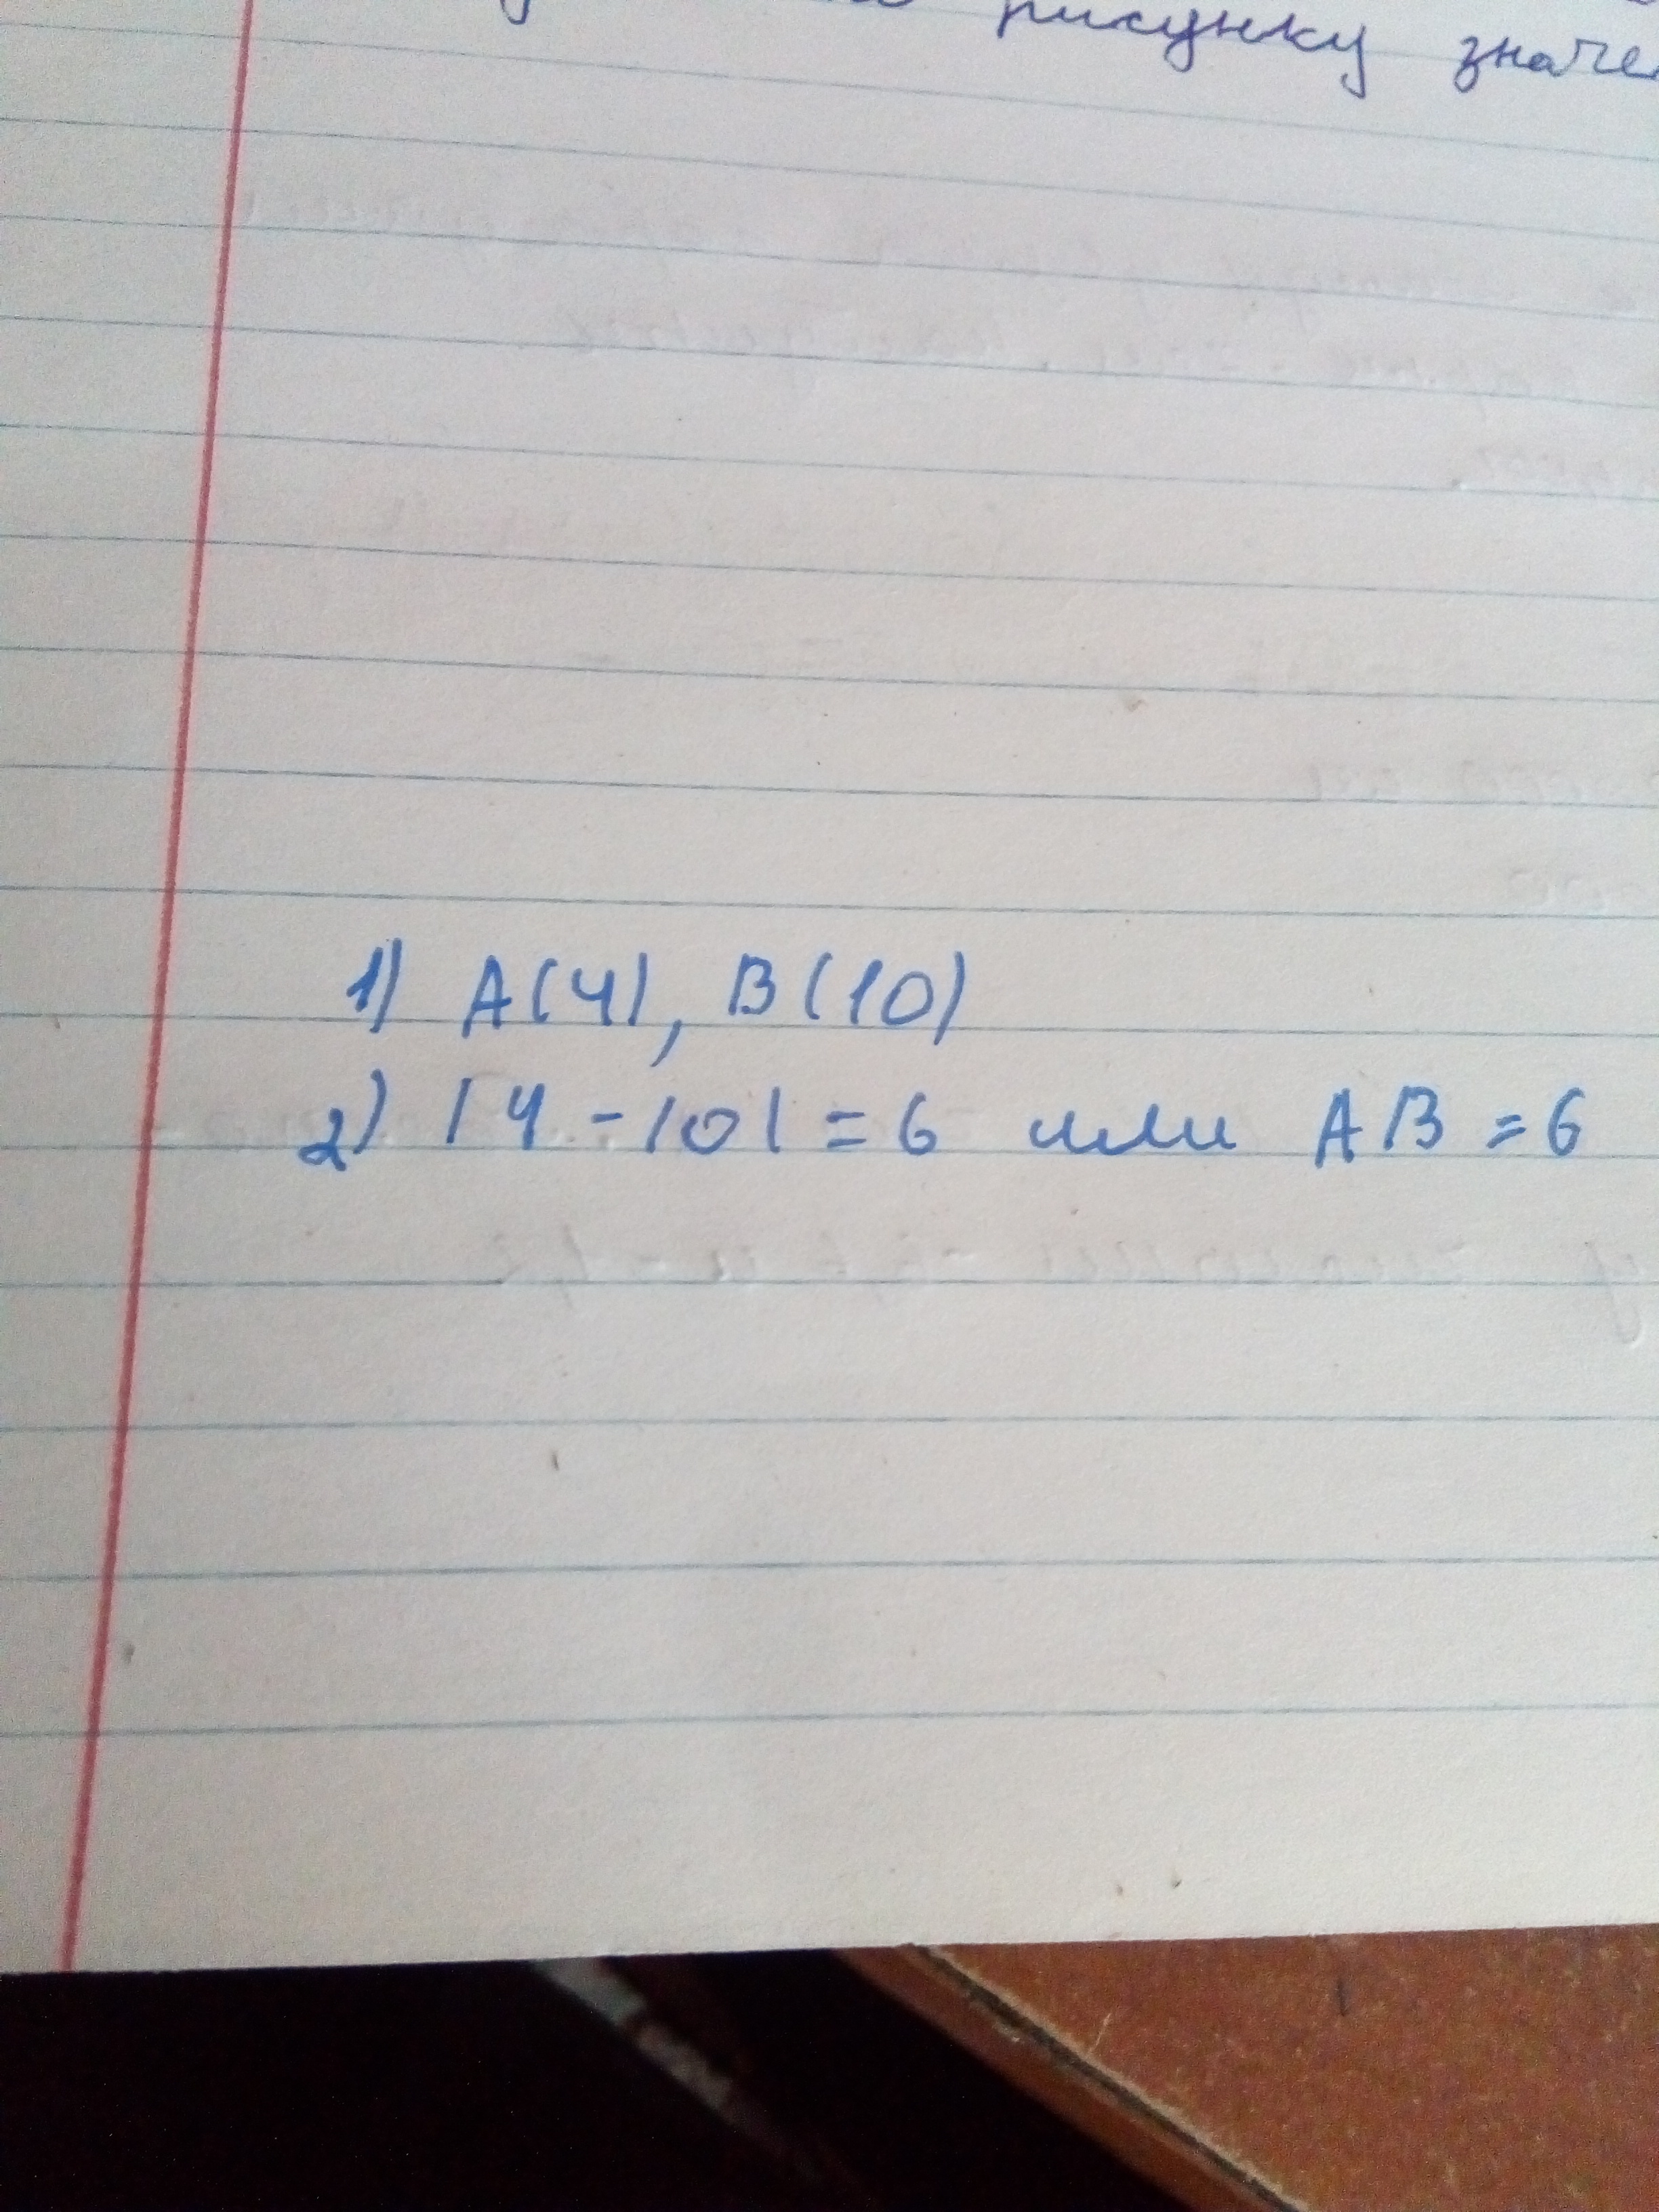 рисунку значе
1) A(4), B(10)
2) |4 - 10| = 6 или AB = 6